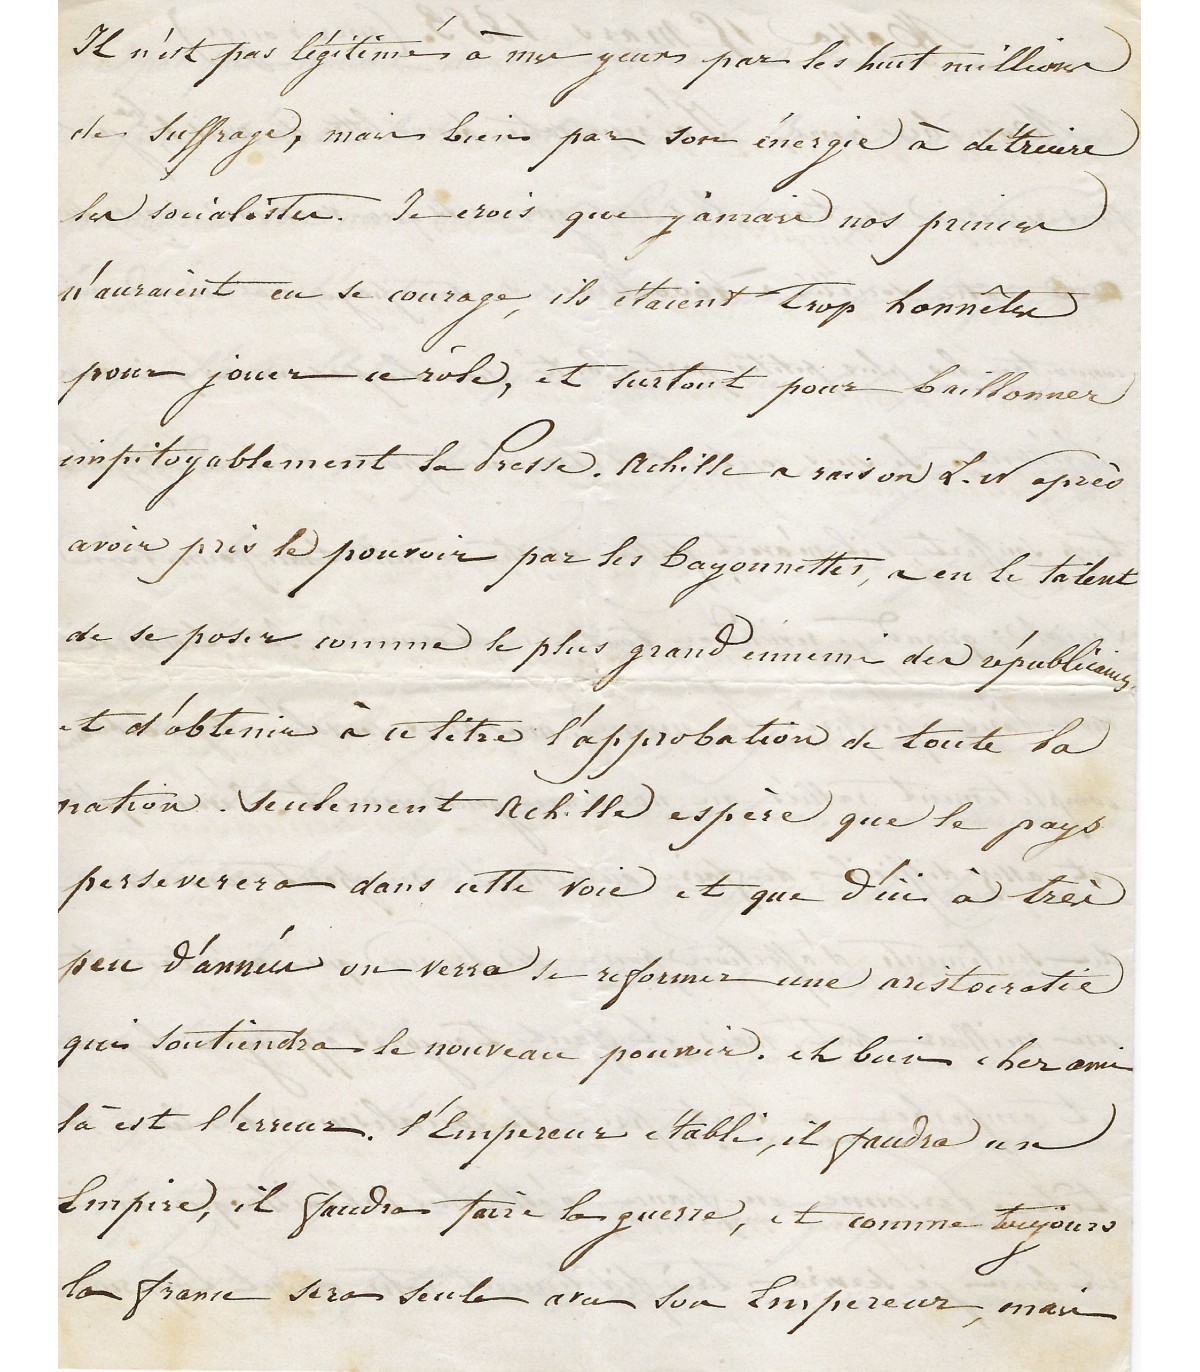 Il n'est pas légitimés à mes yeux par les huit millions
de suffrage, mais bien par son énergie à détruire
les socialistes. Je crois que jamais nos princes
n'auraient eu se courage, ils étaient trop honnêtes
pour jouer ce rôle, et surtout pour baillonner
impitoyablement la Presse. Achille a raison L. N après
avoir pris le pouvoir par les bayonnettes, a eu le talent
de se poser comme le plus grand ennemi des républicains
et d'obtenir à ce titre l'approbation de toute la
nation. Seulement Achille espère que le pays
perseverera dans cette voie et que d'ici à très
peu d'années on verra se reformer une aristocratie
qui soutiendra le nouveau pouvoir. eh bien cher ami
là est l'erreur. l'Empereur établi, il faudra un
Empire, il faudra faire la guerre, et comme toujours
la france sera seule avec son Empereur, mais